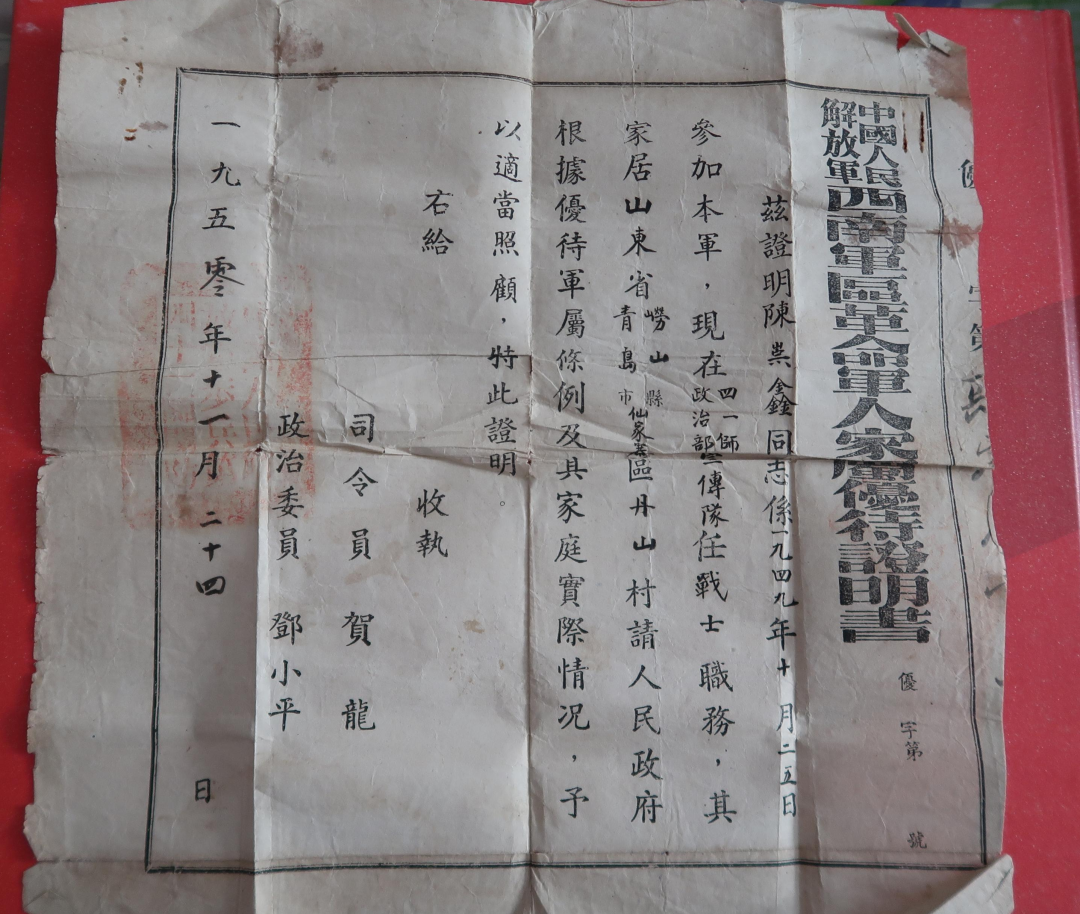 優 字第
中國人民解放軍西南軍區革命軍人家屬優待證明書
優 字第 號
茲證明陳 鑫同志係一九四九年十月二五日
參加本軍，現在四一師政治部宣傳隊任戰士職務，其
家居山東省嶗山縣青島市仙家寨區丹山村請人民政府
根據優待軍屬條例及其家庭實際情况，予
以適當照顧，特此證明。
右給 收執
司令員 賀龍
政治委員 鄧小平
一九五零年十一月二十四日